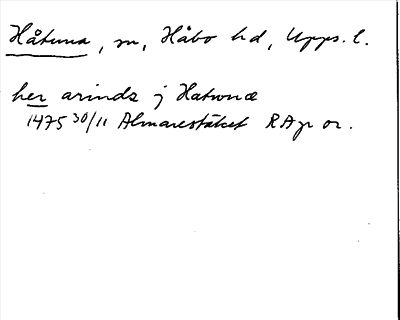 Håtuna, sn, Håbo hd, Upps. l.
her arindz j Hatwnæ
1475 30/11 Almarestäket RA pr or.